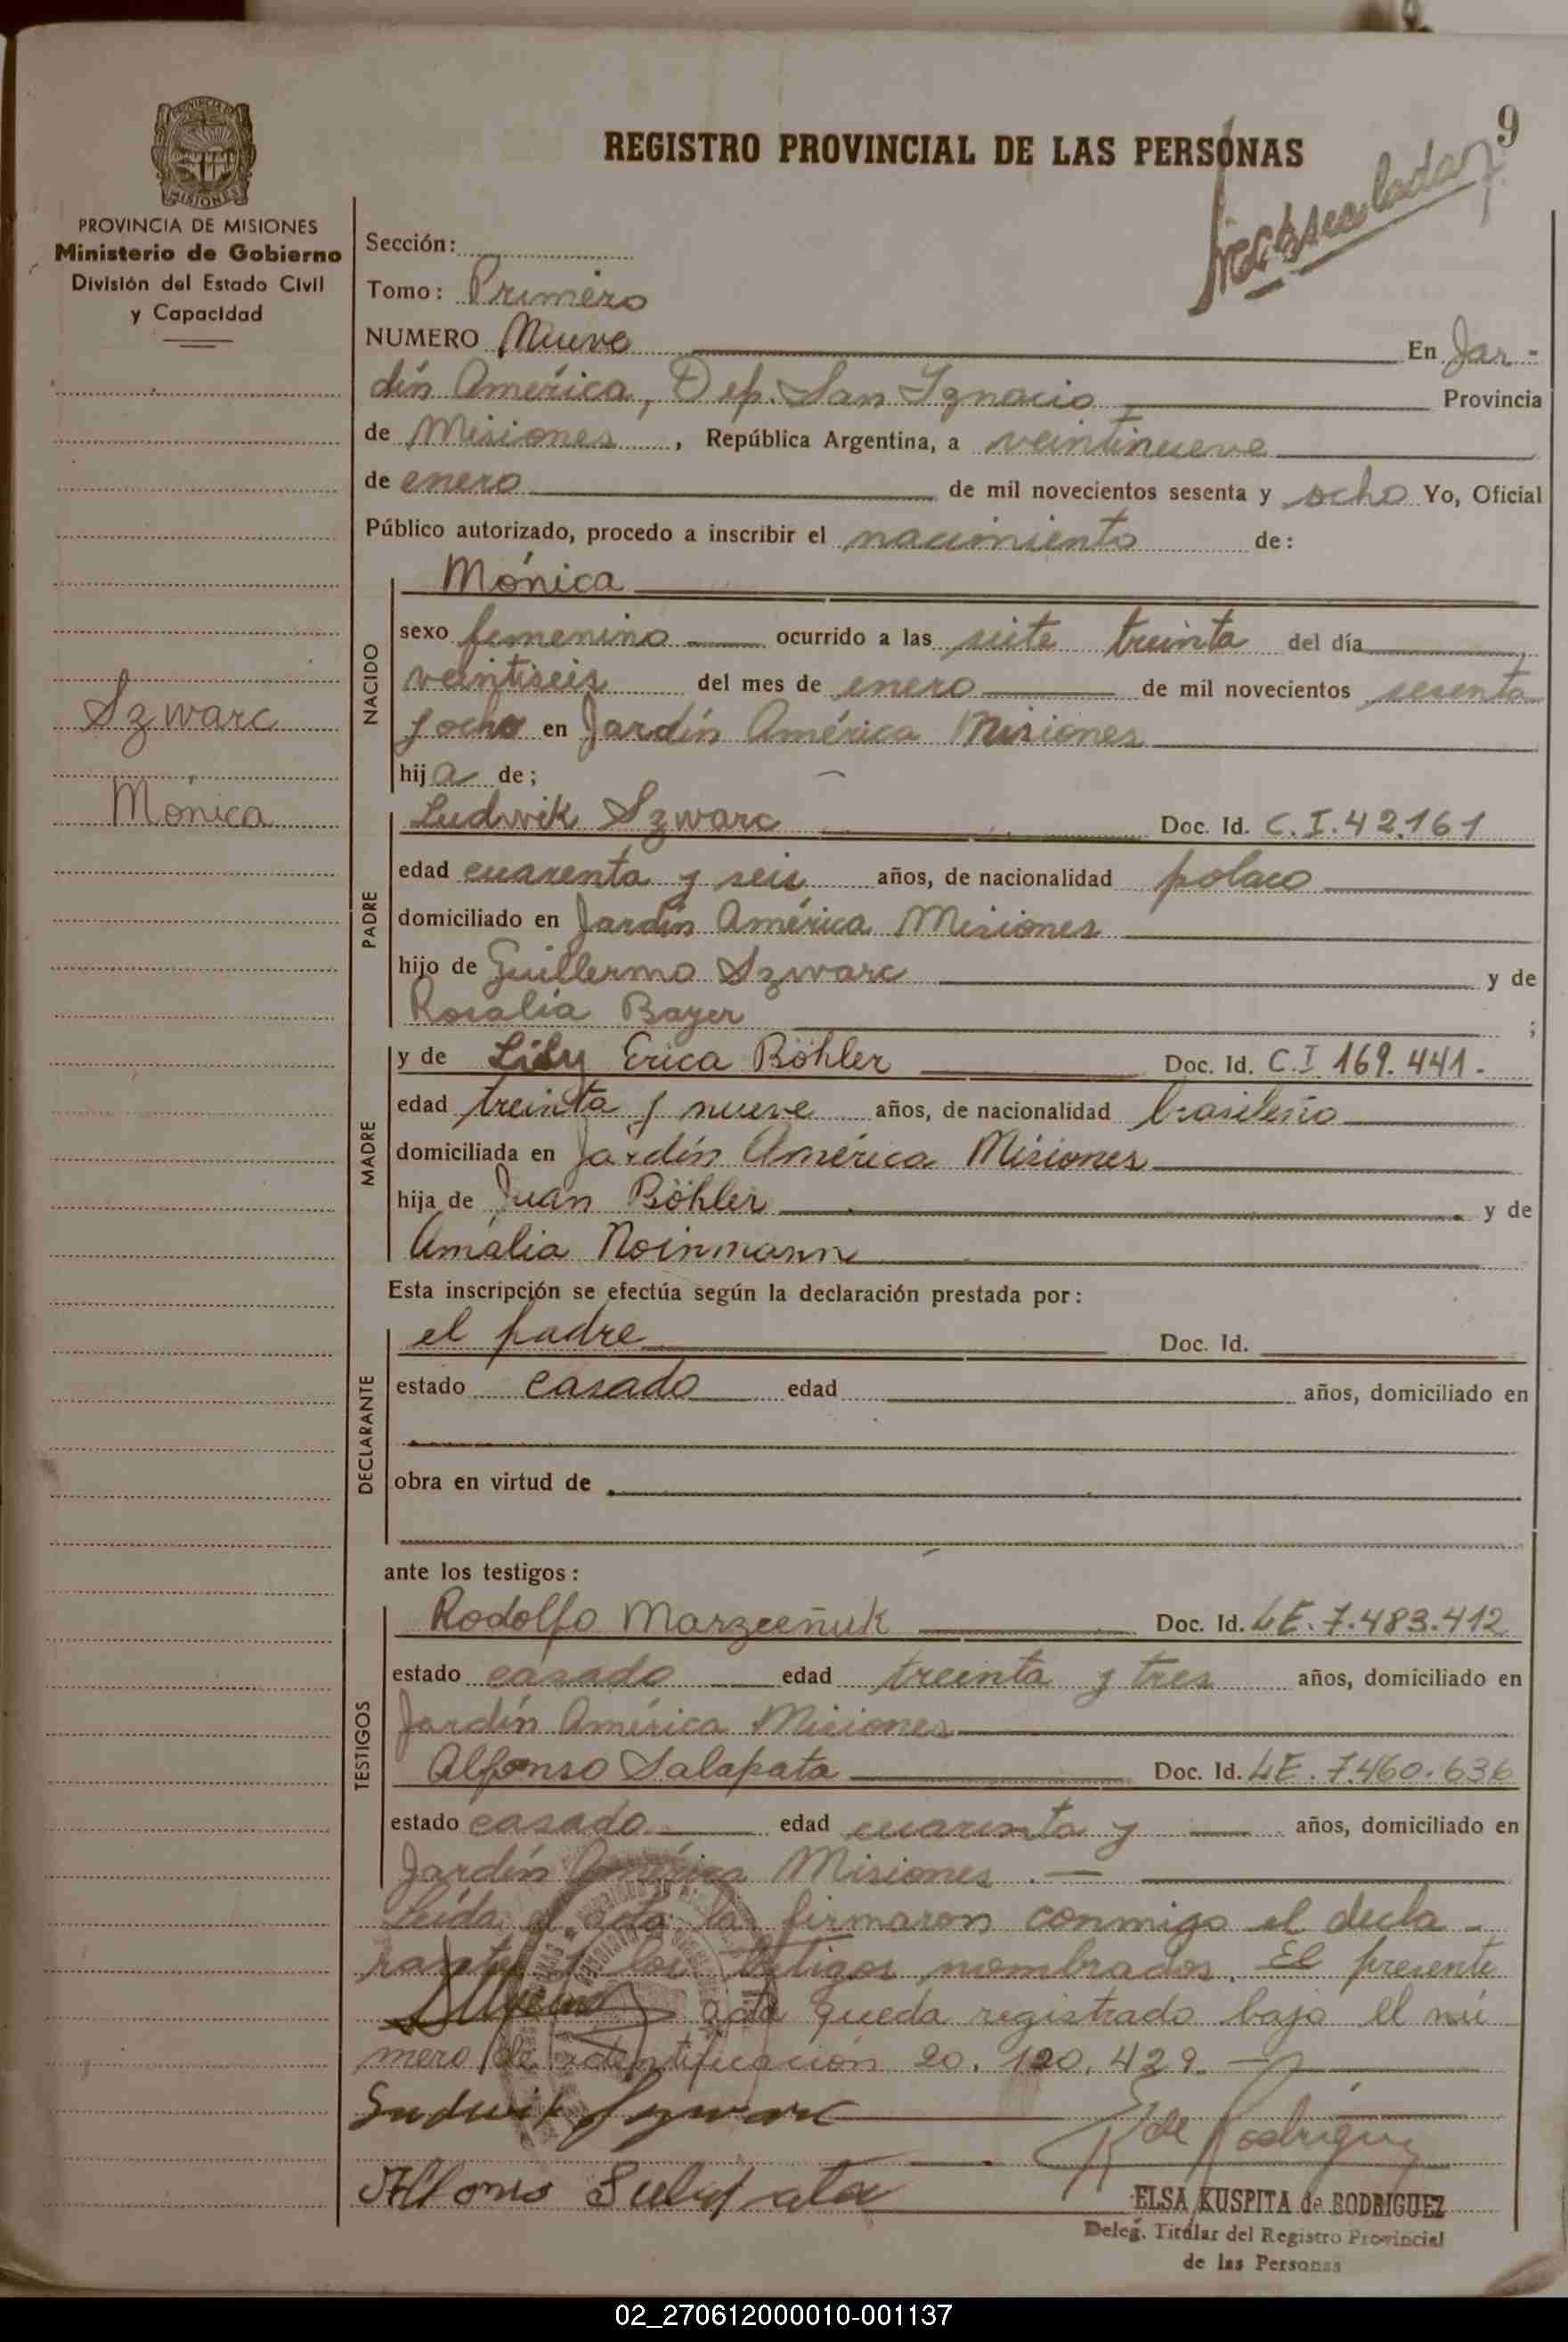 9
REGISTRO PROVINCIAL DE LAS PERSONAS
PROVINCIA DE MISIONES
Ministerio de Gobierno
División del Estado Civil
y Capacidad
Szwarc
Mónica
Sección:
Tomo: Primero
NUMERO Nueve En Jar-
dín América, Dep. San Ignacio Provincia
de Misiones, República Argentina, a veintinueve
de enero de mil novecientos sesenta y ocho Yo, Oficial
Público autorizado, procedo a inscribir el nacimiento de:
NACIDO
Mónica
sexo femenino ocurrido a las siete treinta del día
veintiseis del mes de enero de mil novecientos sesenta
y ocho en Jardín América Misiones
hija de;
PADRE
Ludwik Szwarc Doc. Id. C.I. 42.161
edad cuarenta y seis años, de nacionalidad polaco
domiciliado en Jardín América Misiones
hijo de Guillermo Szwarc y de
Rosalía Bayer ;
MADRE
y de Lidy Erica Böhler Doc. Id. C.I 169.441.-
edad treinta y nueve años, de nacionalidad brasileña
domiciliada en Jardín América Misiones
hija de Juan Böhler y de
Amalia Noinmann
Esta inscripción se efectúa según la declaración prestada por:
DECLARANTE
el padre Doc. Id.
estado casado edad años, domiciliado en
obra en virtud de
ante los testigos:
TESTIGOS
Rodolfo Marzeeñuk Doc. Id. LE. 7.483.412
estado casado edad treinta y tres años, domiciliado en
Jardín América Misiones
Alfonso Salapata Doc. Id. LE. 7.460.636
estado casado edad cuarenta y — años, domiciliado en
Jardín América Misiones.—
Leída el acta la firmaron conmigo el decla-
rante y los testigos nombrados. El presente
acta queda registrado bajo el nú
mero de identificación 20.120.429.
Ludwik Szwarc
E K de Rodriguez
Alfonso Salapata
ELSA KUSPITA de RODRIGUEZ
Deleg. Titular del Registro Provincial
de las Personas
02_270612000010-001137